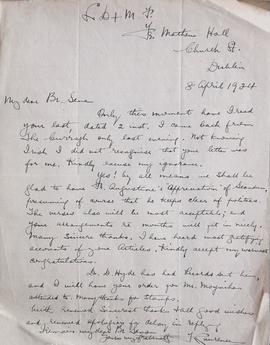 Fr. Mathew Hall
Church St.
Dublin
8 April 1924
My dear Br. Senan
Only this moment have I read
your last, dated 2 inst. I came back from
the Curragh only last evening. Not knowing
Irish I did not recognise that your letter was
for me. Kindly excuse my ignorance.
Yes! by all means we shall be
glad to have Fr. Augustine's Appreciation of
presuming of course that he keeps clear of politics.
The verses also will be most acceptable; and
your arrangements re months will fit in nicely.
Many sincere thanks. I have heard most gratifying
accounts of your Articles. Kindly accept my warmest
congratulations.
Dr. D. Hyde has had Records sent him,
and I will have your order for Mr. Moynihan
attended to. Many thanks for stamps.
With renewed sincerest thanks & all good wishes
and renewed apologies for delay in replying
I remain my dear Br. Senan
Yours very fraternally